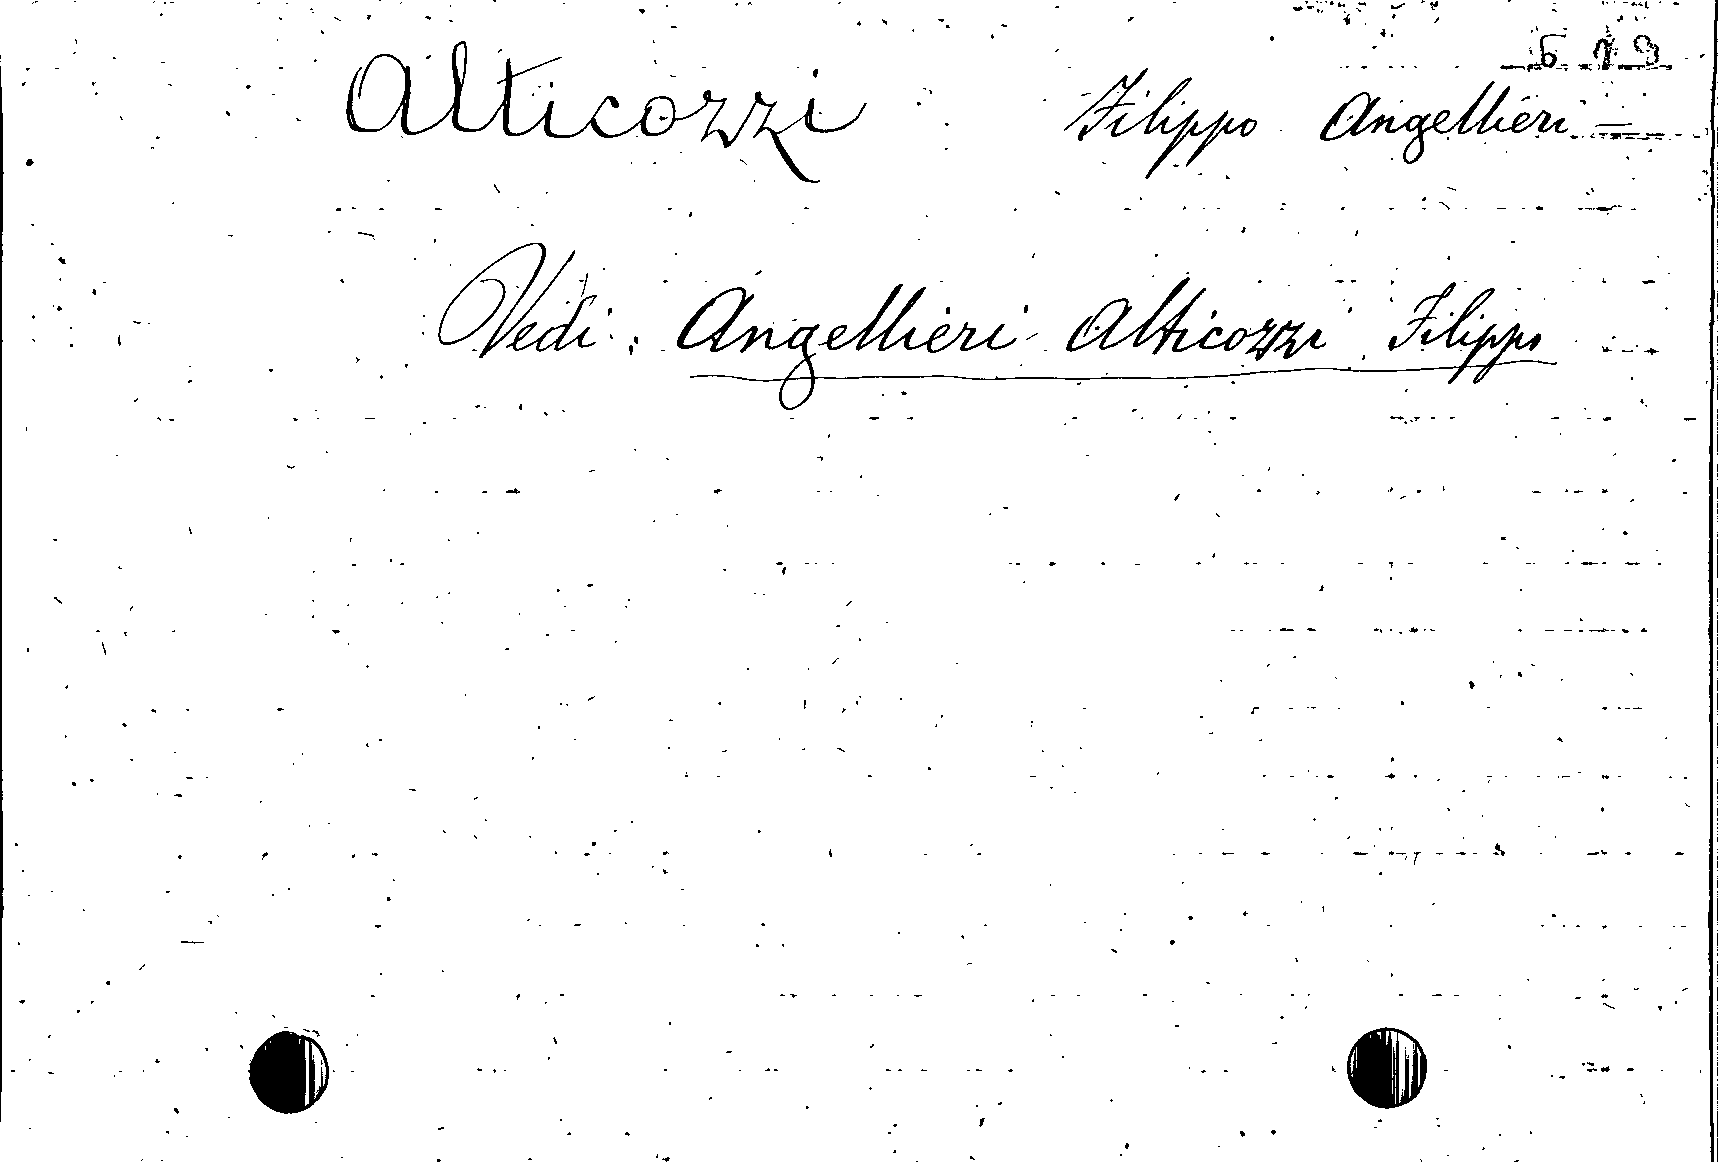 613
Alticozzi Filippo Angellieri =
Vedi: Angellieri Alticozzi Filippo